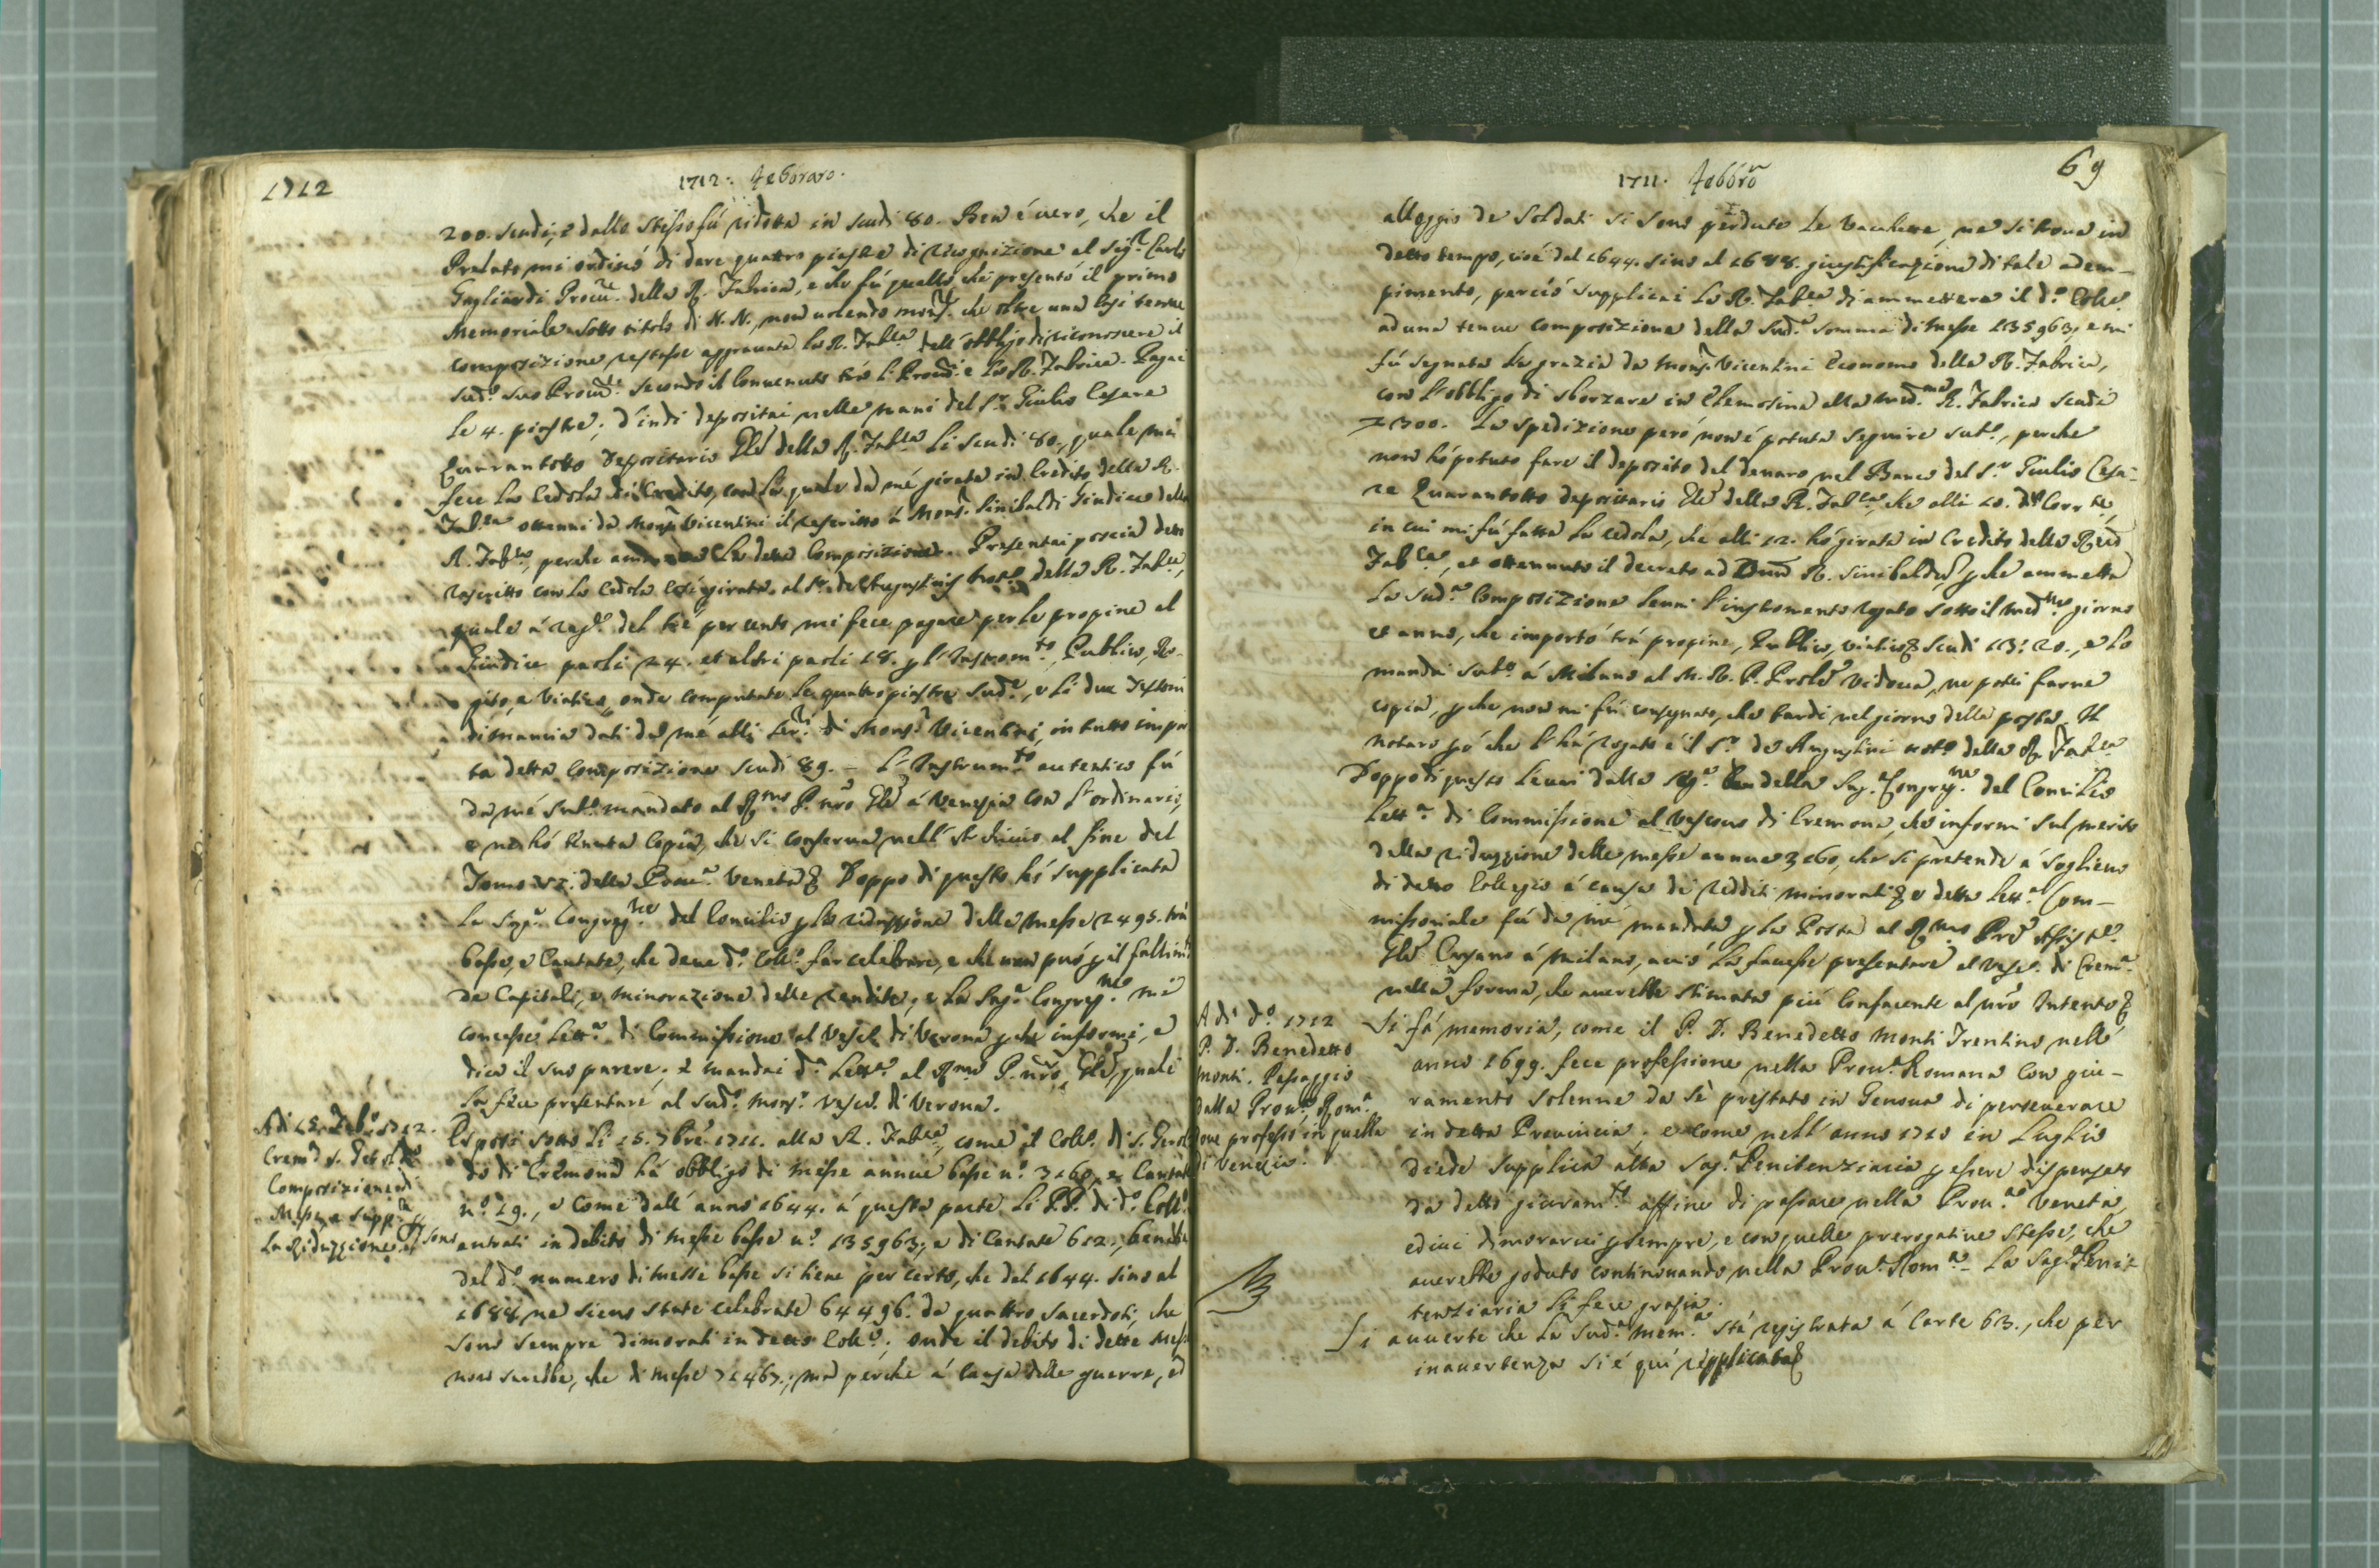 1712
1712. Feboraro.
200. scudi, e dallo stesso fú ridotta in scudi 80. Ben é vero, che il
Prelato mi ordinó di dare quattro piastre di ricognizione al Sig.r Carlo
Gagliardi Procu.re della R. Fabrica, e che fú quello, che presentó il primo
Memoriale sotto titolo di N. N., non volendo mons.r che oltre una cosi tenue
composizione restasse aggravata la R. Fab.ca dell'obbligo di riconoscere il
sud.o suo Procu.re secondo il convenuto trà li Procu.ri e la R. Fabrica. Pagai
le 4. piastre; d'indi depositai nelle mani del S.r Giulio Cesare
Quarantotto Depositario Gle della R. Fab.ca li scudi 80., quale mi
fece la Cedola di Credito, con la quale da mé girata in Credito della R.
Fab.ca ottenni da Mons.r Vicentini il rescritto á Mons.r Sinibaldi Giudice della
R. Fab.ca, perche la detta Composizione. Presentai poscia detto
rescritto con la Cedola cosi girata al S.r de Augustinis Not.o della R. Fab.ca,
quale á rag.e del tré per cento mi fece pagare per le propine al
Giudice paoli 24. et altri paoli 18. p l'Instrom.to, Publico, Ro-
gito, e Viatico, onde computate le quattro piastre sud.e, e li due Testoni
di mancia dati da mé alli Ser.ri di Mons.r Vicentini, in tutto impor
ta detta Composizione scudi 89. - L'Instrum.to autentico fú
da mé sub.o mandato al R.mo P. nro Gle á Venezia con l'ordinario,
e ne hó tenuta Copia, che si conserva nell'Archivio al fine del
Tomo della Prov.a Veneta Doppo di questo hó supplicata
la Sag.a Congreg.ne del Concilio p la riduzzione delle messe 2495. trà
basse, e Cantate, che deve d.o Coll.o far celebrare, e che non puó p il fallim.to
de Capitali, e minorazione delle rendite, e la Sag.a Congreg.ne mi
concesse Lett.a di Commissione al Vesc.o di Verona p che informi, e
dica il suo parere, e mandai d.a Lett.a al R.mo P. nro Gle, quale
la fece presentare al sud.o Mons.r Vesc.o di Verona.
Adi 15. Feb.o 1712.
Crem.a S. Gerol.do
Composizione di
Messe, e supp.ca p
la Riduzzione
Esposi sotto li 15. 7bre 1711. alla R. Fab.ca, come il Coll.o di S. Gerol
do di Cremona há obbligo di messe annue basse n.o 3160, e Cantate
n.o 29., e come dall'anno 1644. á questa parte li PP. di d.o Coll.o sono
entrati in debito di messe basse n.o 135963., e di Cantate 612., benche
del d.o numero di messe basse si tiene per certo, che dal 1644. sino al
1688 ne siens state celebrate 64496. da quattro sacerdoti, che
sono sempre dimorati in detto Coll.o; onde il debito di dette Messe
non sarebbe, che di messe 71467., má perche á causa delle guerre, ed
69
1711. Febbro
alloggio de Soldati si sono perdute le Vacchette, ne si trova in
detto tempo, cioé dal 1644. sino al 1688. giustificazione di tale adem-
pimento, perció supplicai la R. Fab.ca di ammettere il d.o Coll.o
ad una tenue composizione della sud.a somma di messe 135963, e mi
fú segnata la grazia da Mons.r Vicentini Economo della R. Fabrica,
con l'obbligo di sborzare in Elemosina alla med.ma R. Fabrica scudi
300. La spedizione peró non é potuta seguire sub.o, perche
non hó potuto fare il deposito del denaro nel Banco del S.r Giulio Cesa-
re Quarantotto depositario Gle della R. Fab.ca, che alli 10. del Corr.te,
in cui mi fú fatta la cedola, che alli 12. hó girata in Credito della Red
Fab.ca, et ottennuto il decreto ad Dnum R. Sinibaldum p che ammetta
la sud.a Composizione levai l'instromento rogato sotto il med.mo giorno
et anno, che importó trá propine, Publico, viatico scudi 13: 20., e lo
mandai sub.o á Milano al M. R. P. Prole Vidoua, ne potei farne
copia, p che non mi fú consegnato, che tardi nel giorno della posta. Il
notaro pó che l'há rogato é il S.r de Augustini not.o della R. Fab.ca
Doppo di questo levai dalla Seg.a della Sag. Congreg.ne del Concilio
Lett.a di Commissione al Vescovo di Cremona, che informi sul merito
della riduzzione delle messe annue 3160, che si pretende á sogliевo
di detto Collegio á causa di redditi minorati e detta Lett.a Com-
missoriale fú da mé mandata p la Posta al R.mo Pre Assist.e
Gle Cusano á Milano, ació la facesse presentare al Vesc.o di Crem.a
nella forma, che averebbe stimata piú confacente al nro Intento
Adi d.o 1712
P. D. Benedetto
Monti. Passaggio
dalla Prov.a Rom.a
dove professó in quella
di Venezia.
Si fá memoria, come il P. D. Benedetto Monti Trentino nell'
anno 1699. fece professione nella Prov.a Romana con giu-
ramento solenne da sè prestato in Genova di perseverare
in detta Provincia; e come nell'anno 1710 in Luglio
diede supplica alla Sag.a Penitenziaria p essere dispensato
da detto giuram.to affine di passare nella Prov.a Veneta,
ed ivi dimorarvi p sempre, e con quelle prerogative stesse, che
averebbe goduto continovando nella Prov.a Rom.a - La Sag.a Peni-
tenziaria li fece grazia.
Si avverte che la sud.a mem.a stá registrata á Carte 63., che per
inavertenza si é qui repplicata